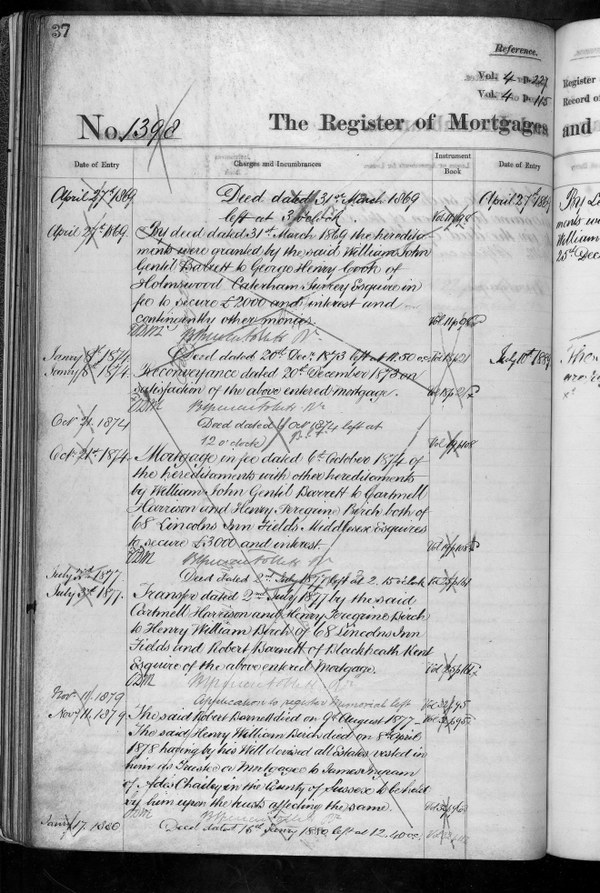 37
Reference.
Vol. 4 p. 221
Vol. 4 p. 115
No. 1398
The Register of Mortgages
and
Register
Record of
Date of Entry
Charges and Incumbrances
Instrument Book
Date of Entry
April 27th 1869
Deed dated 31st March 1869
April 27th 1869
left at 3 o'clock.
April 27th 1869
By deed dated 31st March 1869 the heredita
ments were granted by the said William John
Gentil Barrett to George Henry Cook of
Holmwood Caterham Surrey Esquire in
fee to secure £2000 and interest and
contingently other monies.
Janry 8th 1874
Deed dated 20th Decr. 1873 left at 11.50
July 10th
Janry 8th 1874
Reconveyance dated 20th December 1873 on
satisfaction of the above entered mortgage.
Octr 21st 1874
Deed dated 6 Octr 1874 left at
12 o'clock
Octr 21st 1874
Mortgage in fee dated 6th October 1874 of
the hereditaments with other hereditaments
by William John Gentil Barrett to Cartmell
Harrison and Henry Peregrine Birch both of
68 Lincolns Inn Fields Middlesex Esquires
to secure £3000 and interest.
July 3rd 1877
Deed dated 2nd July 1877 left at 2.15 o'clock
July 3rd 1877.
Transfer dated 2nd July 1877 by the said
Cartmell Harrison and Henry Peregrine Birch
to Henry William Birch of 68 Lincolns Inn
Fields and Robert Barnett of Blackheath Kent
Esquire of the above entered Mortgage.
Novr 11 1879
Application to register Memorial left
Novr 11. 1879
The said Robert Barnett died on 9th August 1877
The said Henry William Birch died on 8th April
1878 having by his Will devised all Estates vested in
him as Trustee or Mortgagee to James Ingram
of Ades Chailey in the County of Sussex to be held
by him upon the trusts affecting the same.
Janry 17. 1880
Deed dated 16th Janry 1880 left at 12.40